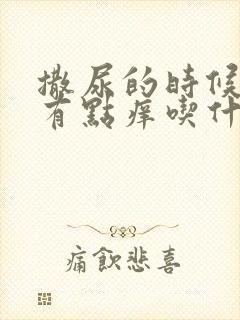 撒尿的時候
有點痒喫什
痛飲悲喜